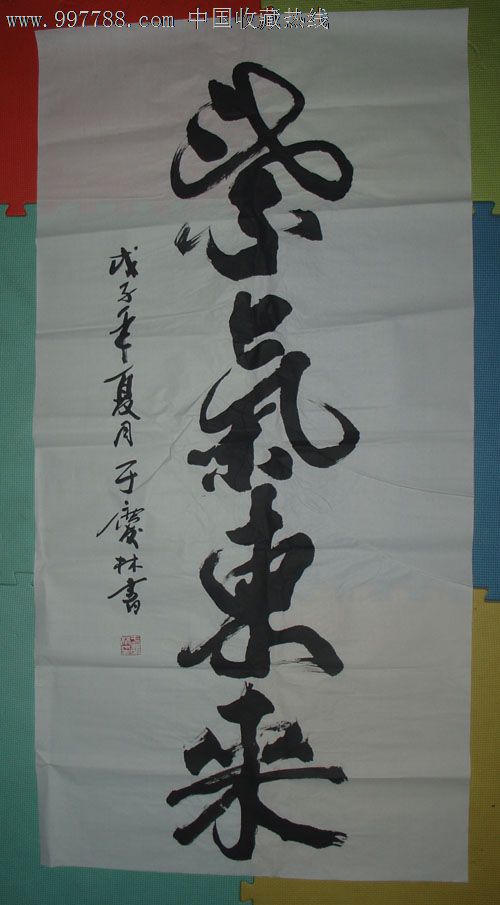 www.997788.com 中国收藏热线
紫氣東来
戊子年夏月于慶林書